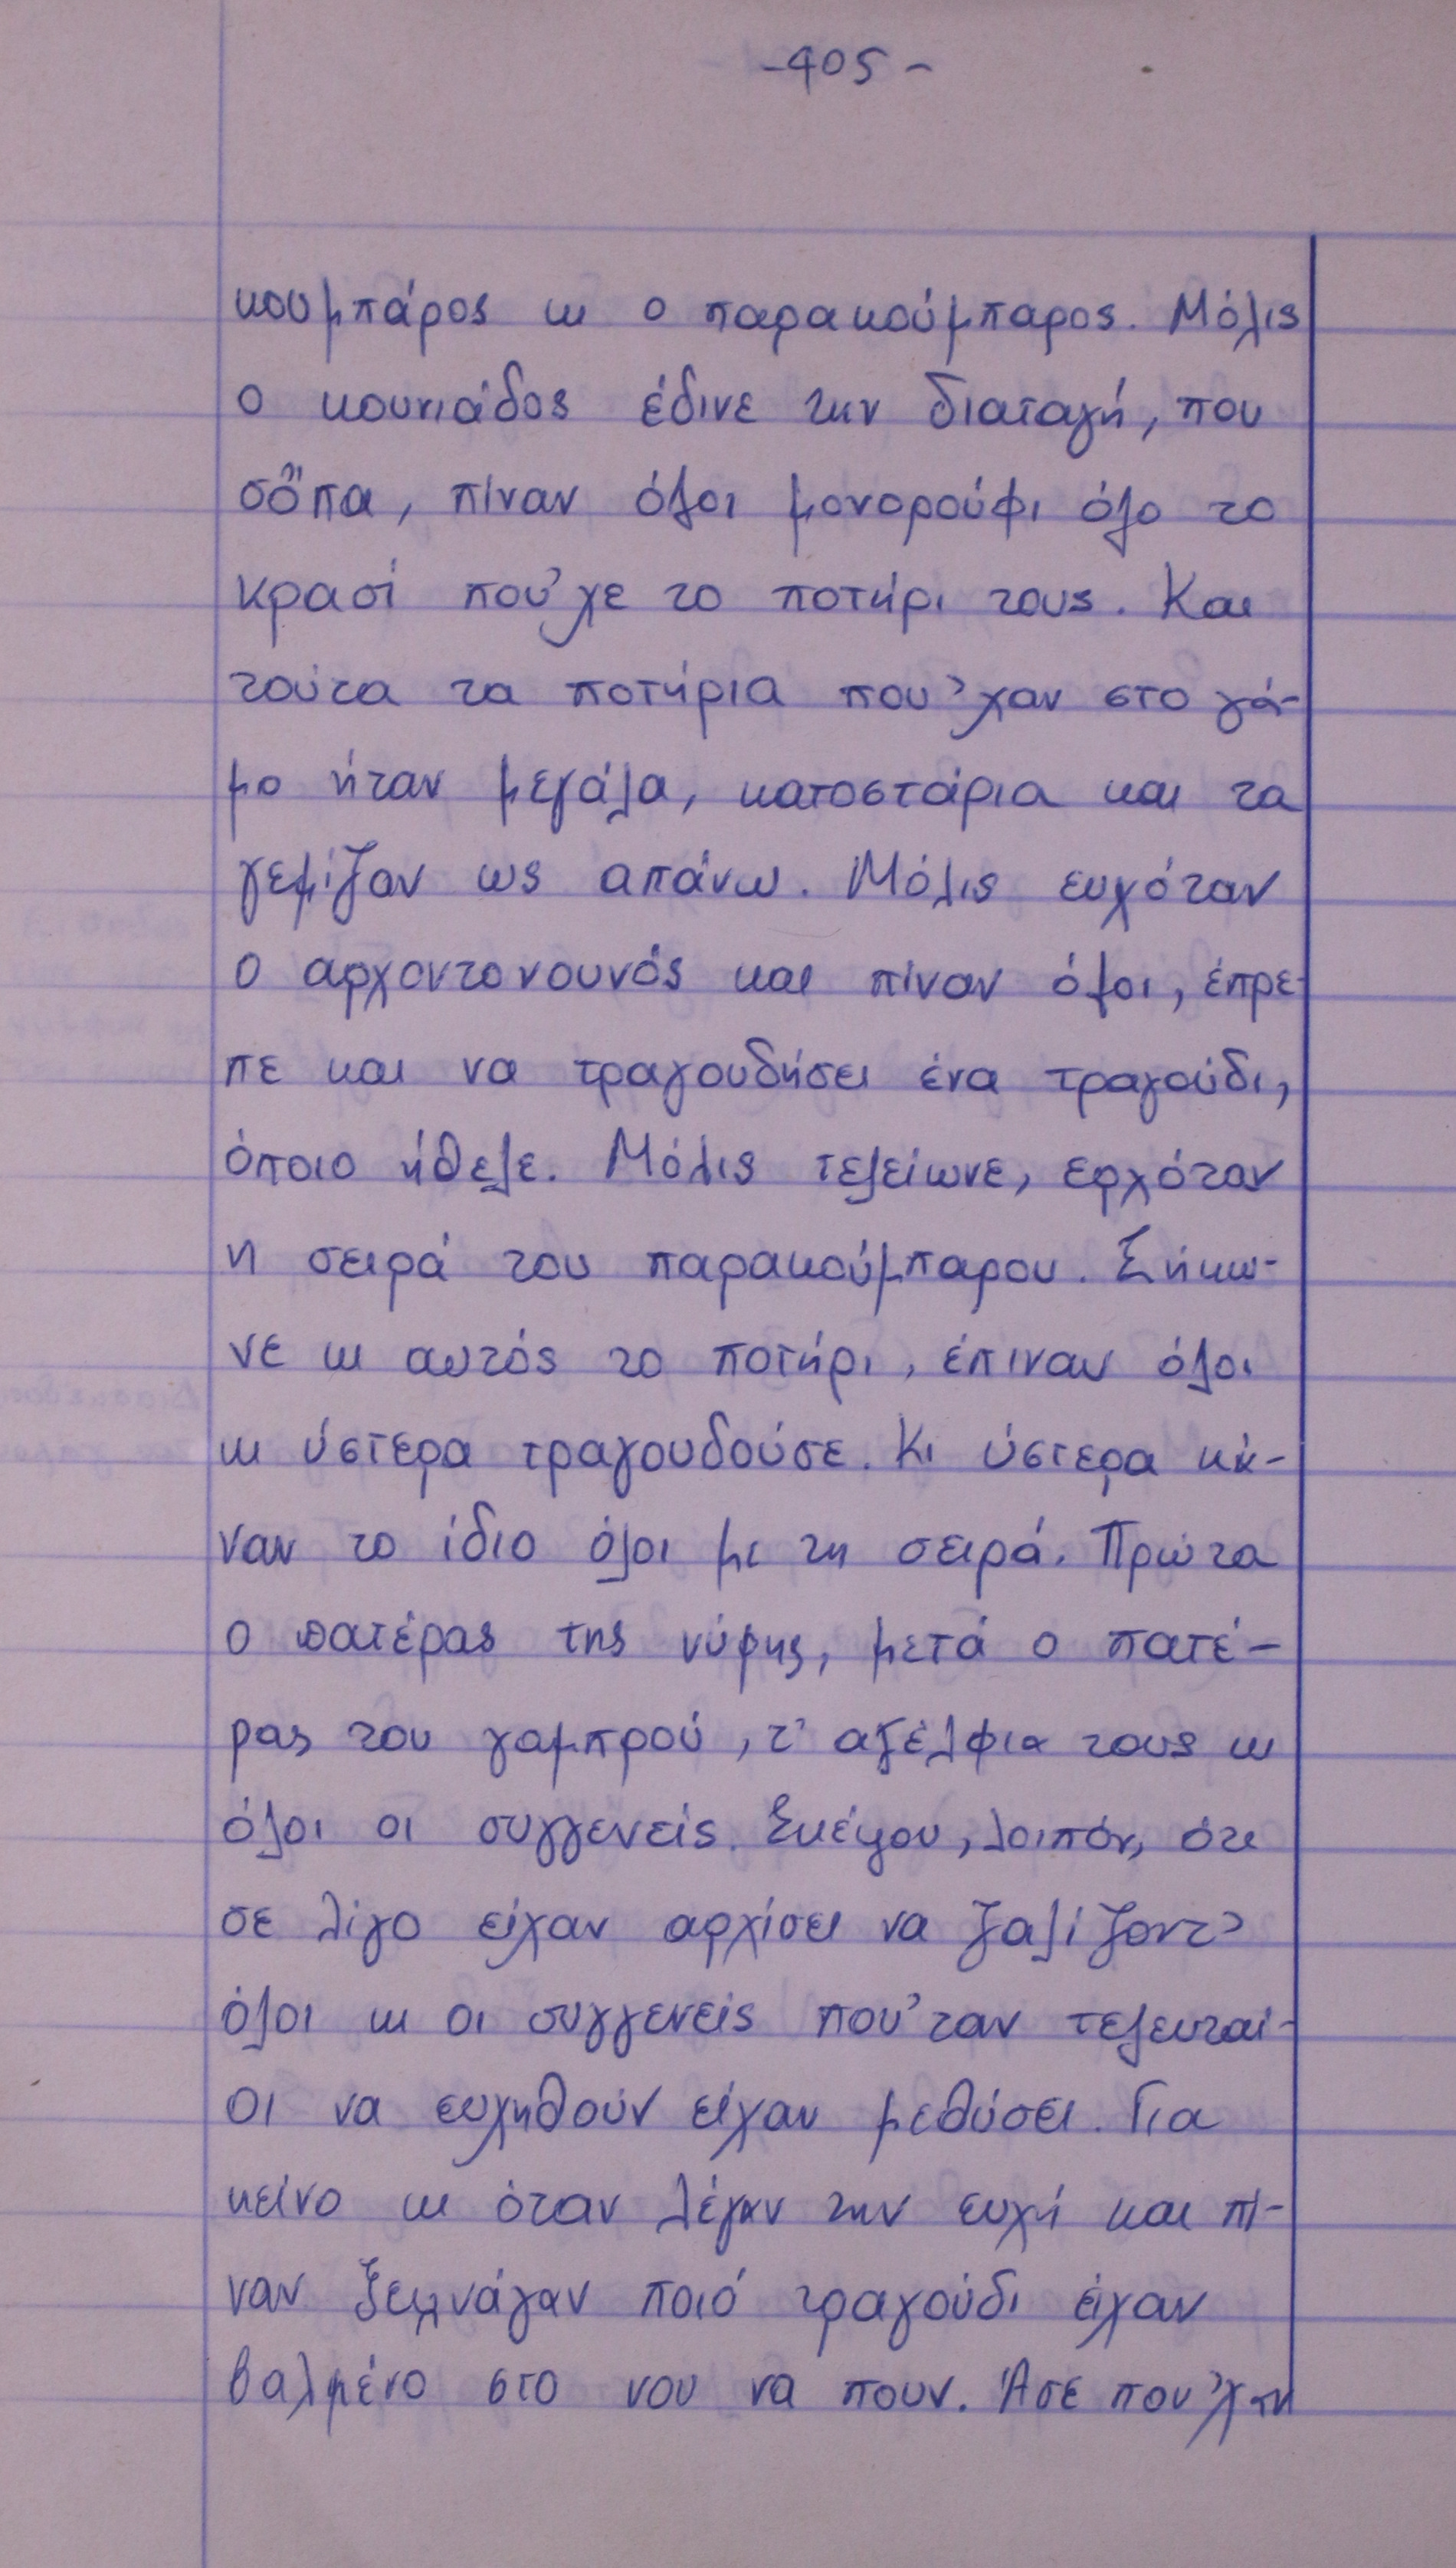 -405-
κουμπάρος κι ο παρακούμπαρος. Μόλις
ο κουνιάδος έδινε την διαταγή, που
σὄπα, πίναν όλοι μονορούφι όλο το
κρασί πού'χε το ποτήρι τους. Και
τούτα τα ποτήρια που'χαν στο γά-
μο ήταν μεγάλα, κατοστάρια και τα
γεμίζαν ως απάνω. Μόλις ευχόταν
ο αρχοντονουνός και πίναν όλοι, έπρε-
πε και να τραγουδήσει ένα τραγούδι,
όποιο ήθελε. Μόλις τελείωνε, ερχόταν
η σειρά του παρακούμπαρου. Σήκω-
νε κι αυτός το ποτήρι, έπιναν όλοι
κι ύστερα τραγουδούσε. Κι ύστερα κά-
ναν το ίδιο όλοι με τη σειρά. Πρώτα
ο πατέρας της νύφης, μετά ο πατέ-
ρας του γαμπρού, τ' αξέλφια τους κι
όλοι οι συγγενείς. Σκέψου, λοιπόν, ότι
σε λίγο είχαν αρχίσει να ζαλίζοντ'
όλοι κι οι συγγενείς που'ταν τελευταί-
οι να ευχηθούν είχαν μεθύσει. Για
κείνο κι όταν λέγαν την ευχή και πί-
ναν ξεχνάγαν ποιό τραγούδι είχαν
βαλμένο στο νου να πουν. Άσε που'χαν